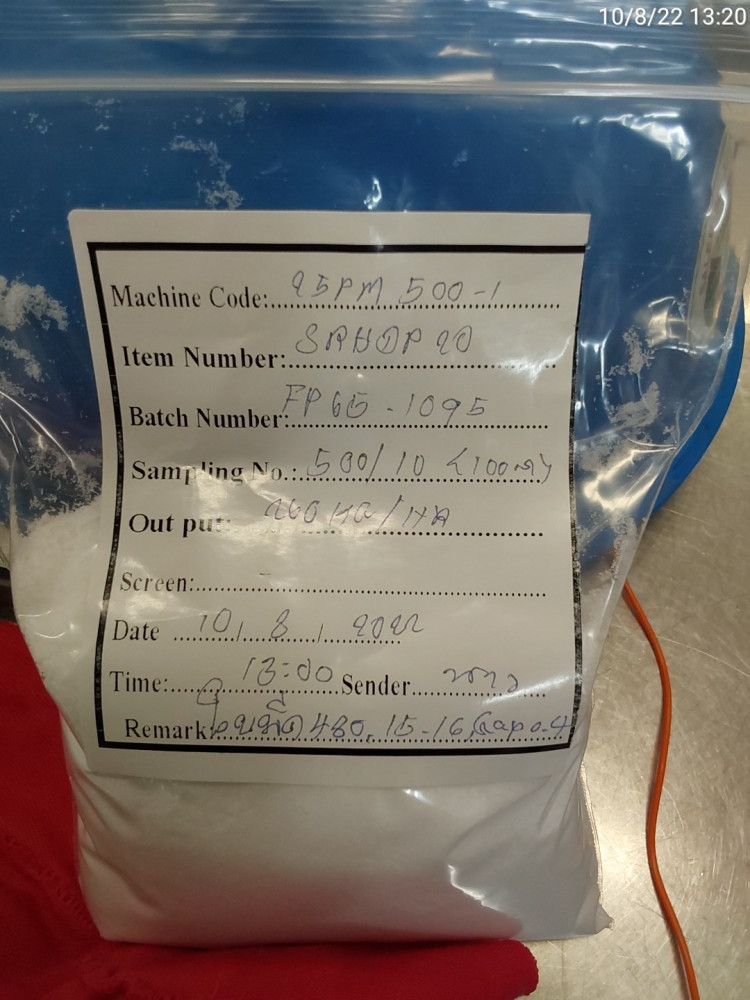 10/8/22 13:20
Machine Code: 25PM 500-1
Item Number: SRHDP 20
Batch Number: FP65-1095
Sampling No.: 500/10
Out put: 260 KG/HR
Screen: -
Date 10/8/2022
Time: 13:00 Sender
Remark: 480, 15-16, Gap 0.4